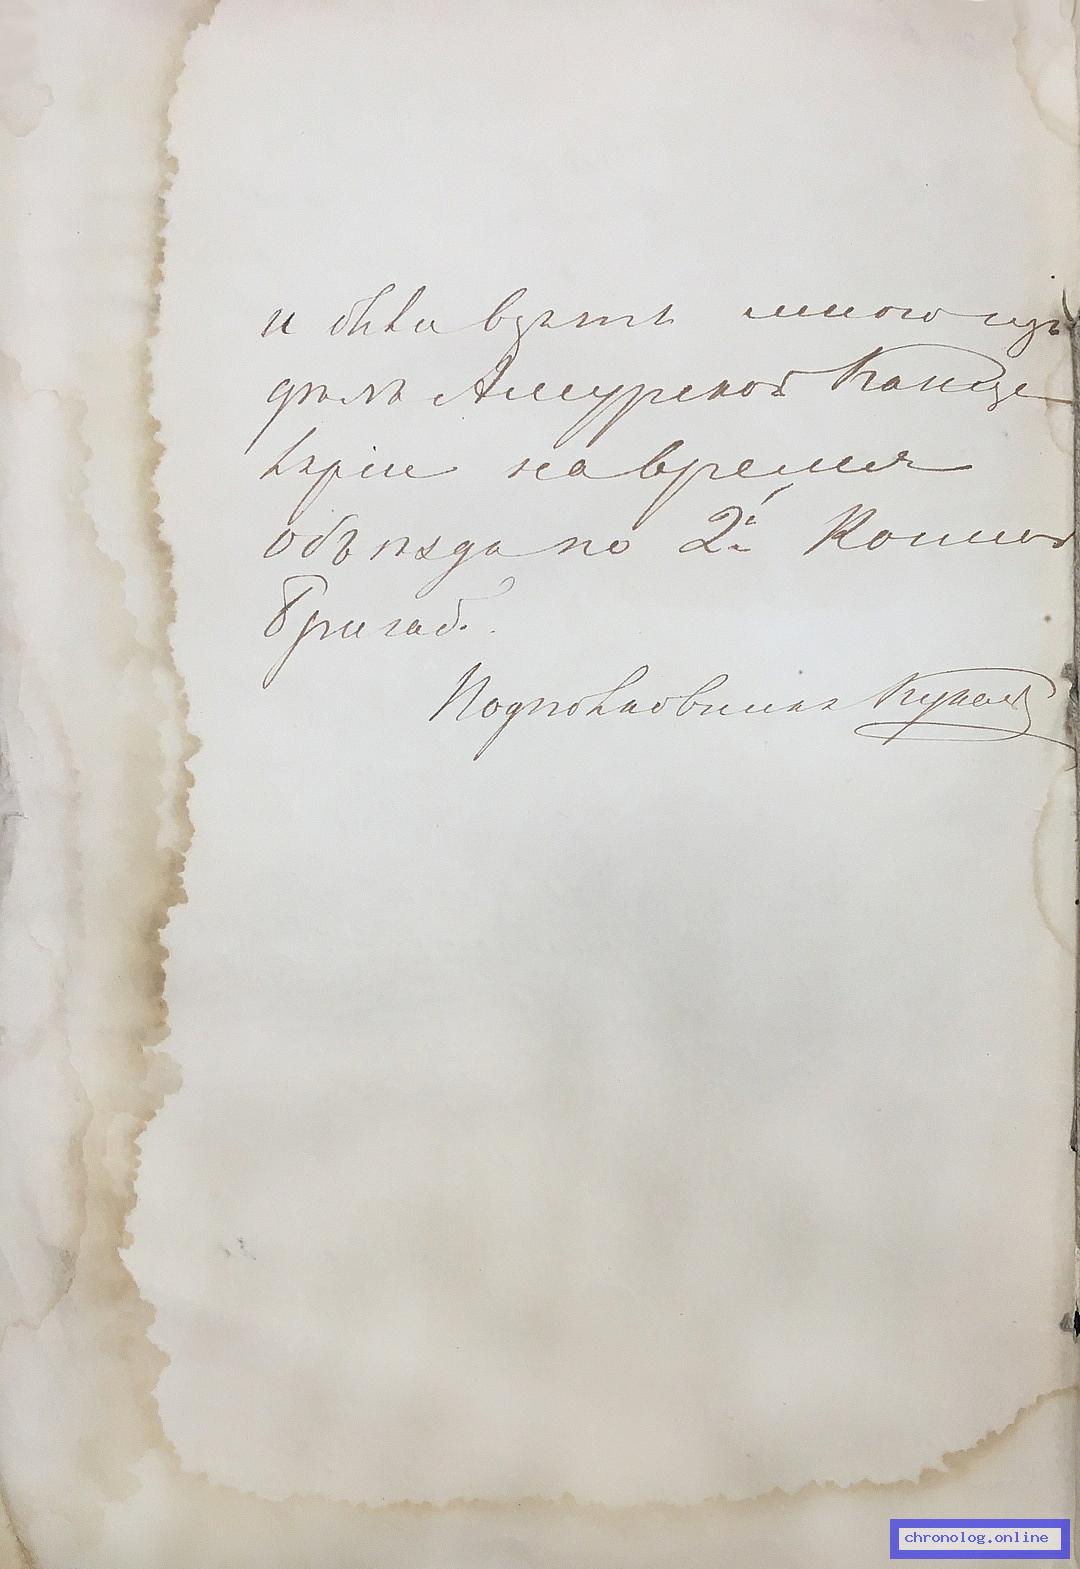 и были взяты мною изъ
дѣлъ Амурской Канце
ляріи на время
объѣзда по 2й Конной
Бригад.
Подполковникъ
chronolog.online